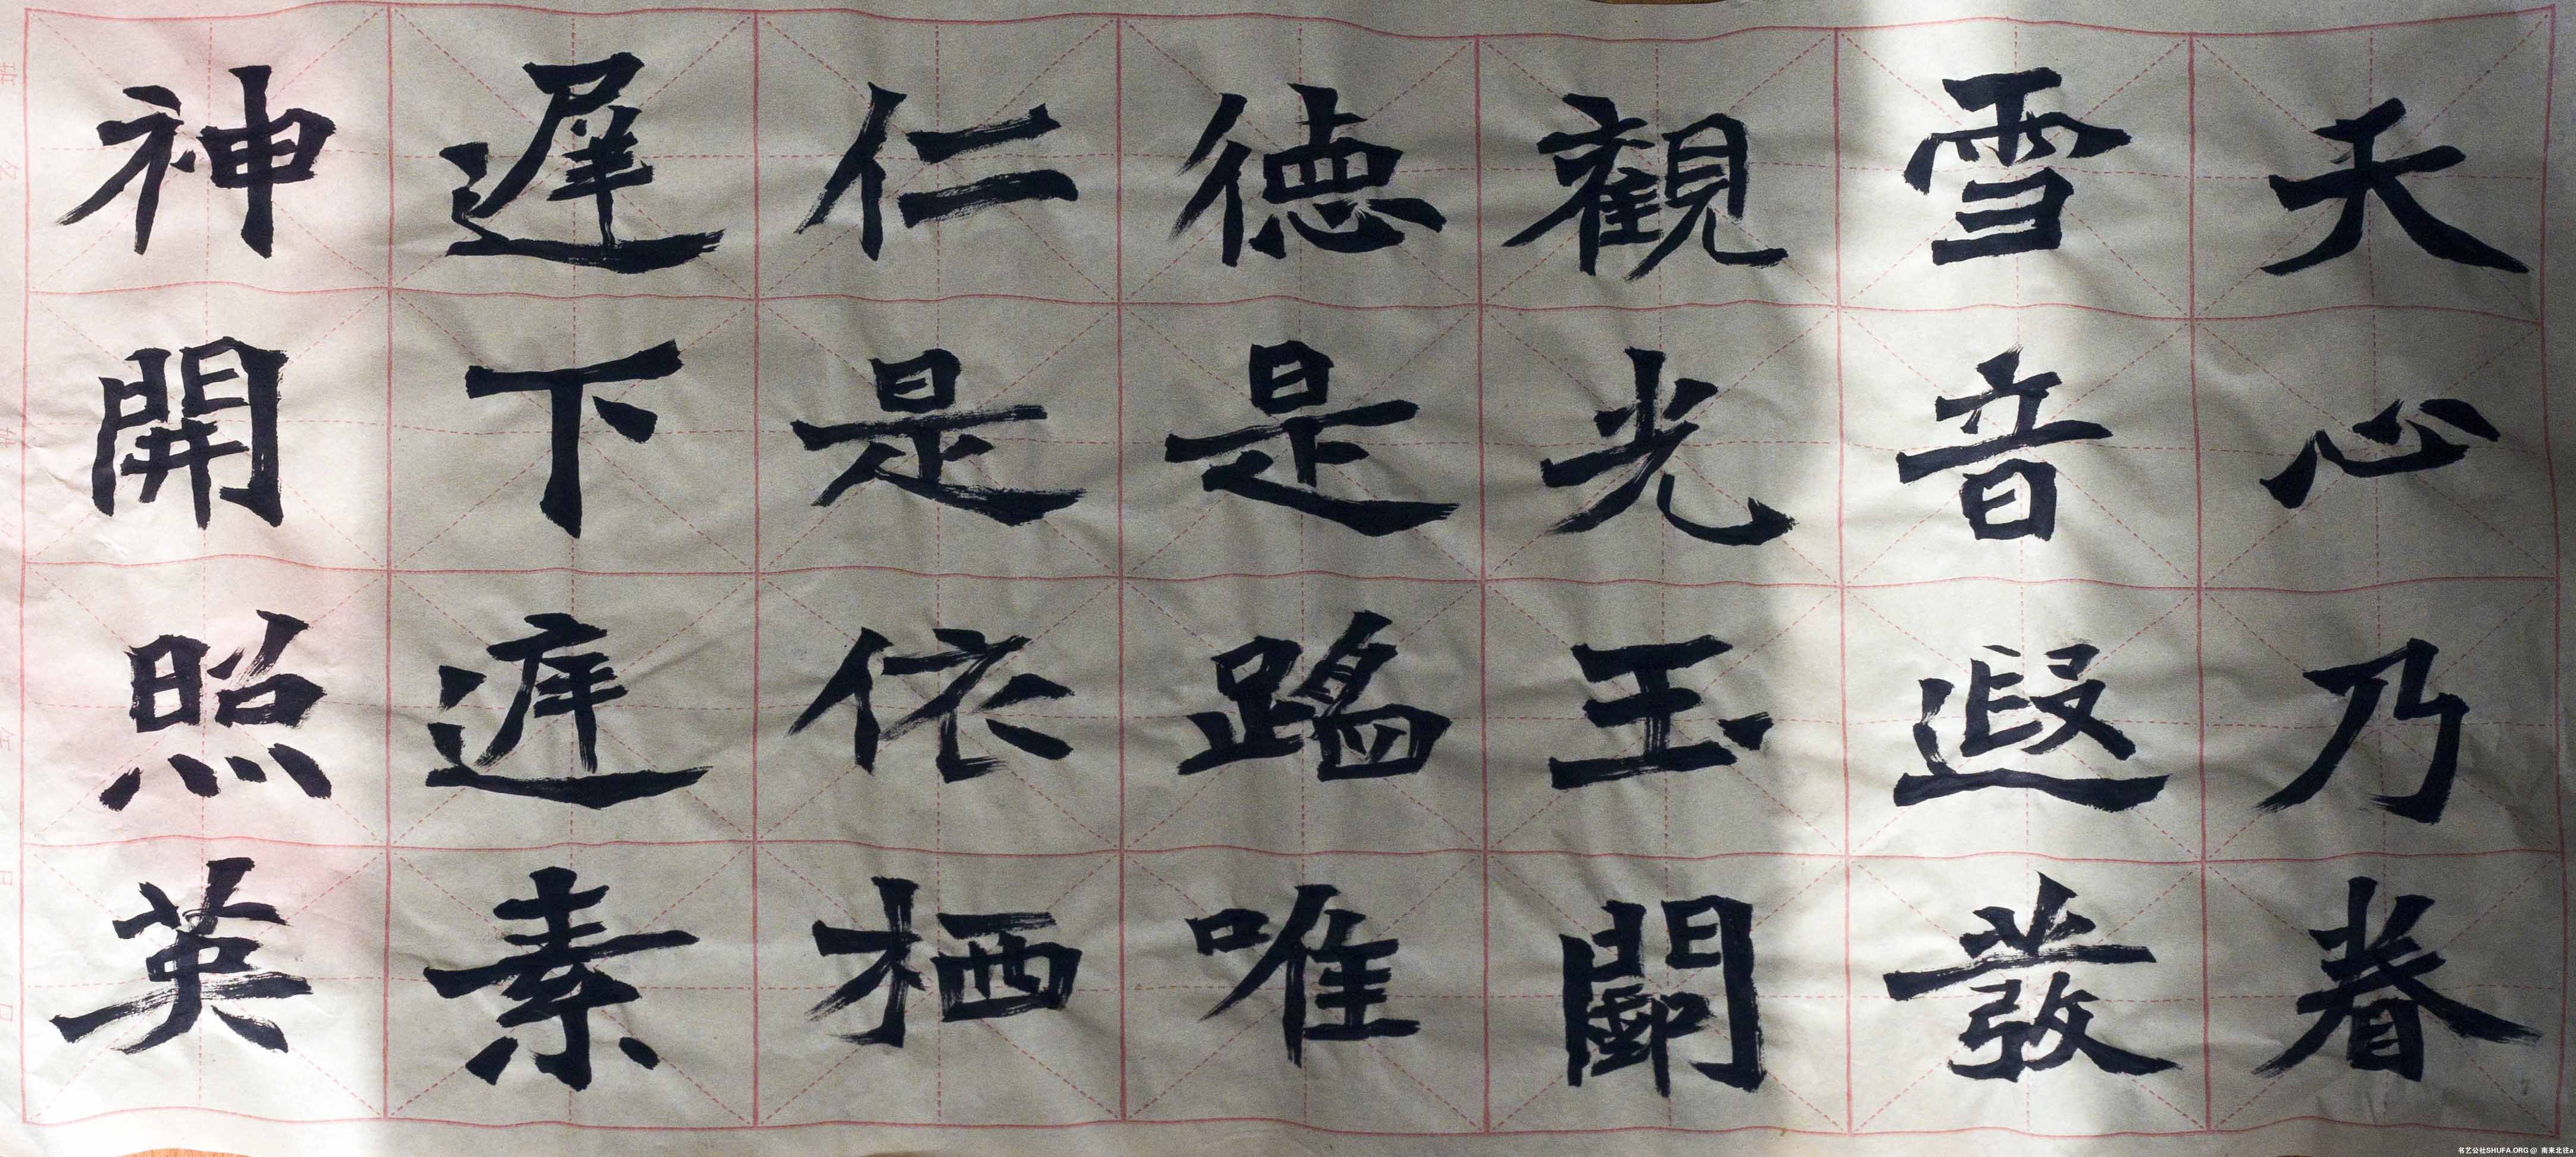 天心乃眷
雪音遐發
觀光玉闕
德是蹈唯
仁是依栖
遲下庭素
神開照英
书艺公社SHUFA.ORG @ 南来北往